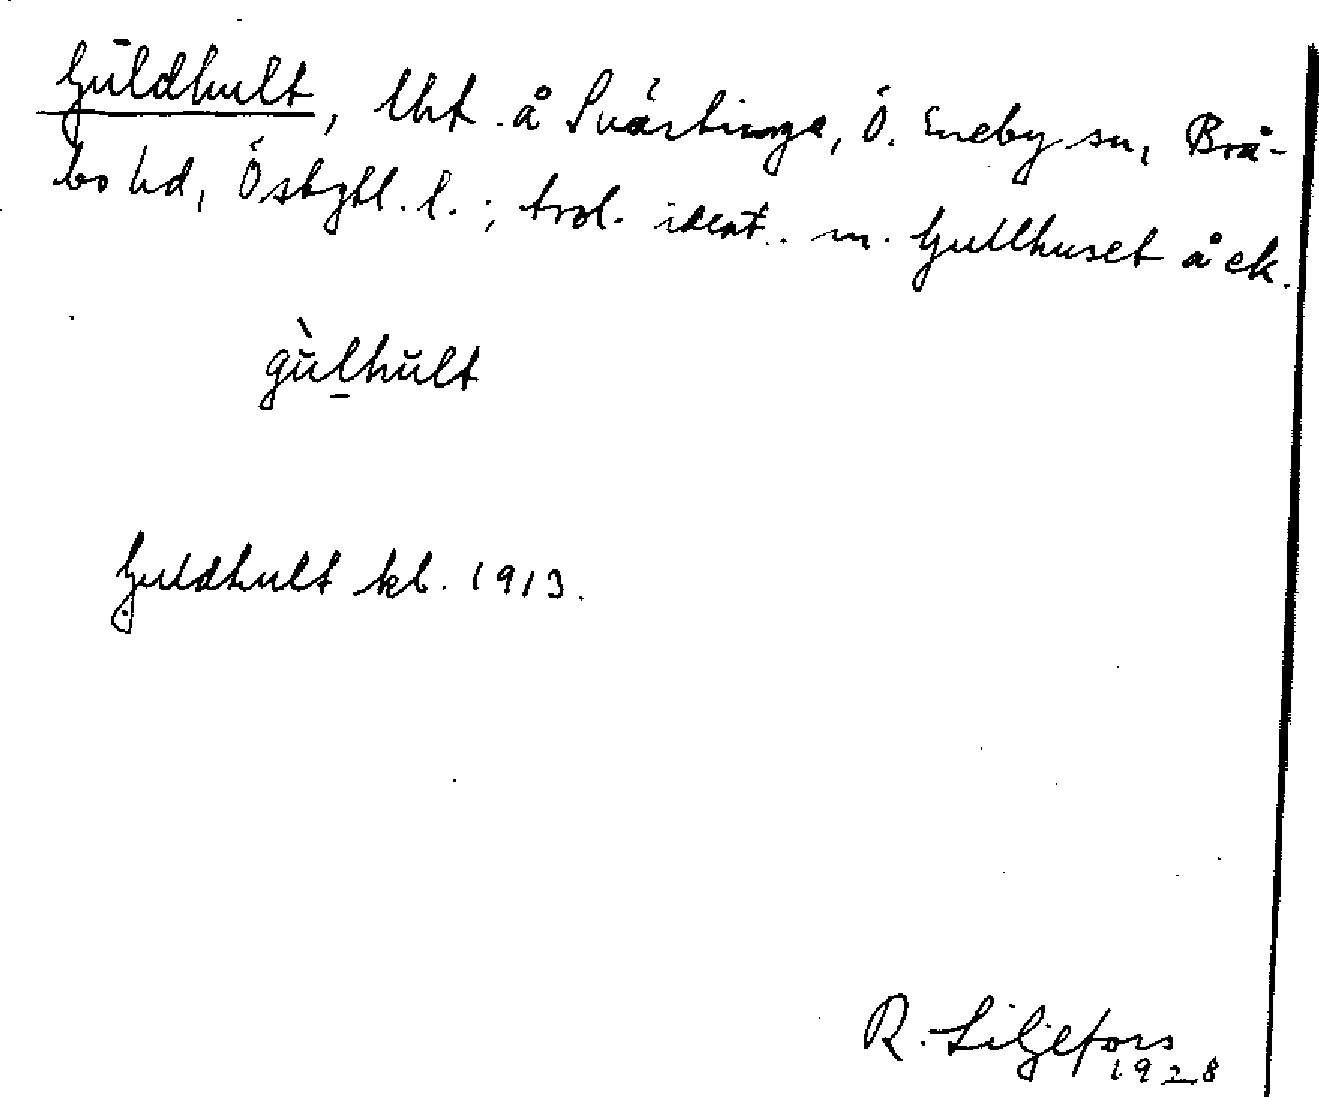 Guldhult, lht å Svärtinge, Ö. Eneby sn, Brå-
bo hd, Östgtl. l.; trol. ident. m. Gullhuset å ek.
gùlhult
Guldhult kb. 1913.
R. Liljefors
1928